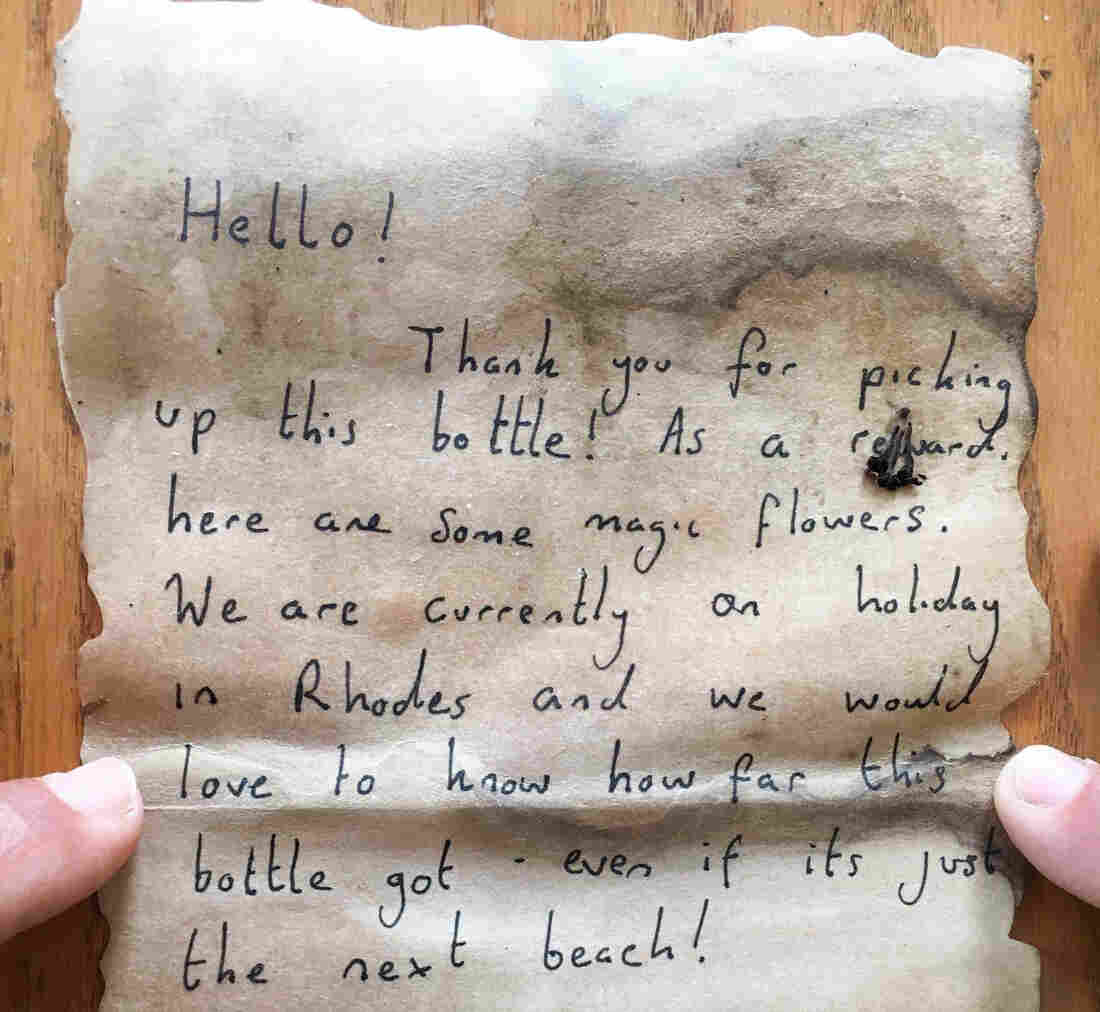 Hello!
Thank you for picking
up this botttle! As a reward,
here are some magic flowers.
We are currently on holiday
in Rhodes and we would
love to know how far this
bottle got - even if its just
the next beach!